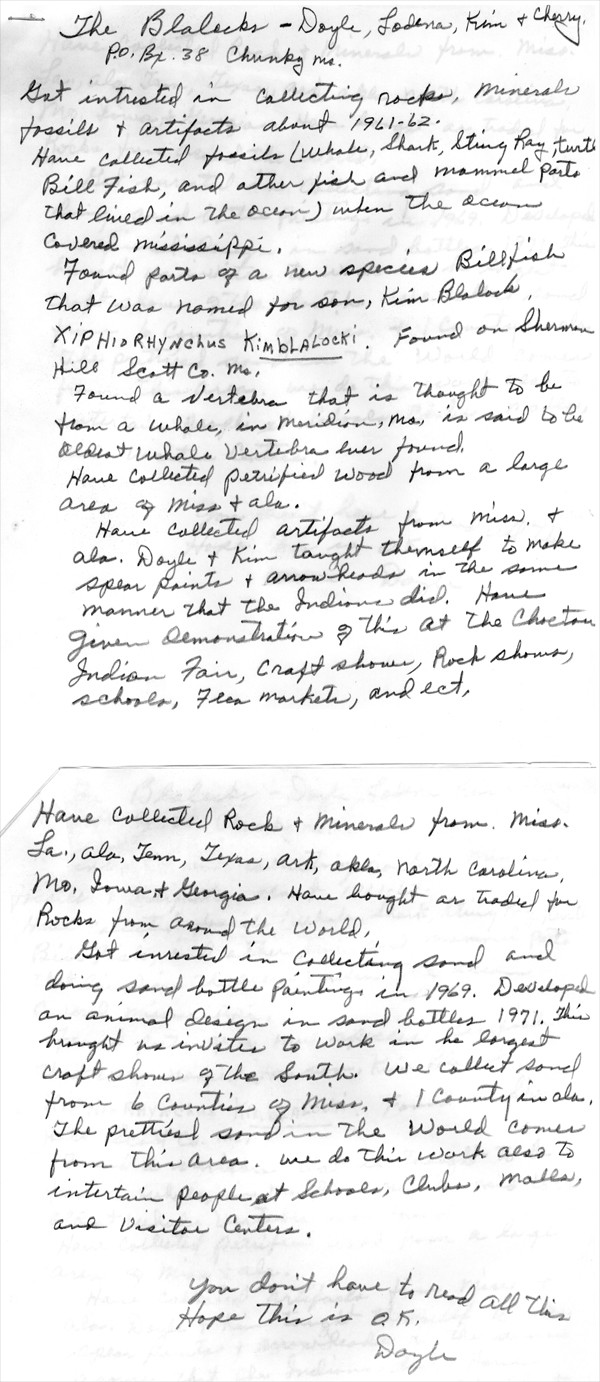 The Blalocks - Doyle, Lodena, Kim & Cherry.
P.O. Bx. 38 Chunky Ms.
Got intrested in collecting rocks, minerals
fossils & artifacts about 1961-62.
Have collected fossils (Whale, Shark, Sting Ray, turtl
Bill Fish, and other fish and mammel parts
that lived in the ocean) when the ocean
covered Mississippi.
Found parts of a new species Billfish
that was named for son, Kim Blalock,
XIPHIORHYNCHUS KIMBLALOCKI. Found on Sherman
Hill Scott Co. Ms.
Found a Vertebra that is thought to be
from a whale, in Meridian, Ms. is said to be
oldest whale vertebra ever found.
Have collected petrified wood from a large
area of Miss & ala.
Have collected artifacts from Miss. &
ala. Doyle & Kim taught themself to make
spear points & arrowheads in the same
manner that the Indians did. Have
given Demonstration of this at the Choctaw
Indian Fair, Craft shows, Rock shows,
schools, Flea markets, and ect,
Have Collected Rock & Minerals from. Miss.
La., ala, Tenn, Texas, Ark, okla, North Carolina,
Mo, Iowa & Georgia. Have bought or traded for
Rocks from around the World,
Got inrested in Collecting sand and
doing sand bottle paintings in 1969. Developed
an animal design in sand bottles 1971. This
brought us invites to work in he largest
craft shows of the South. We collect sand
from 6 Counties of Miss, & 1 County in ala.
The prettiest sand in the World comes
from this area. we do this work also to
intertain people at Schools, Clubs, Malls,
and Visitor Centers.
You don't have to read all this
Hope this is O.K.
Doyle